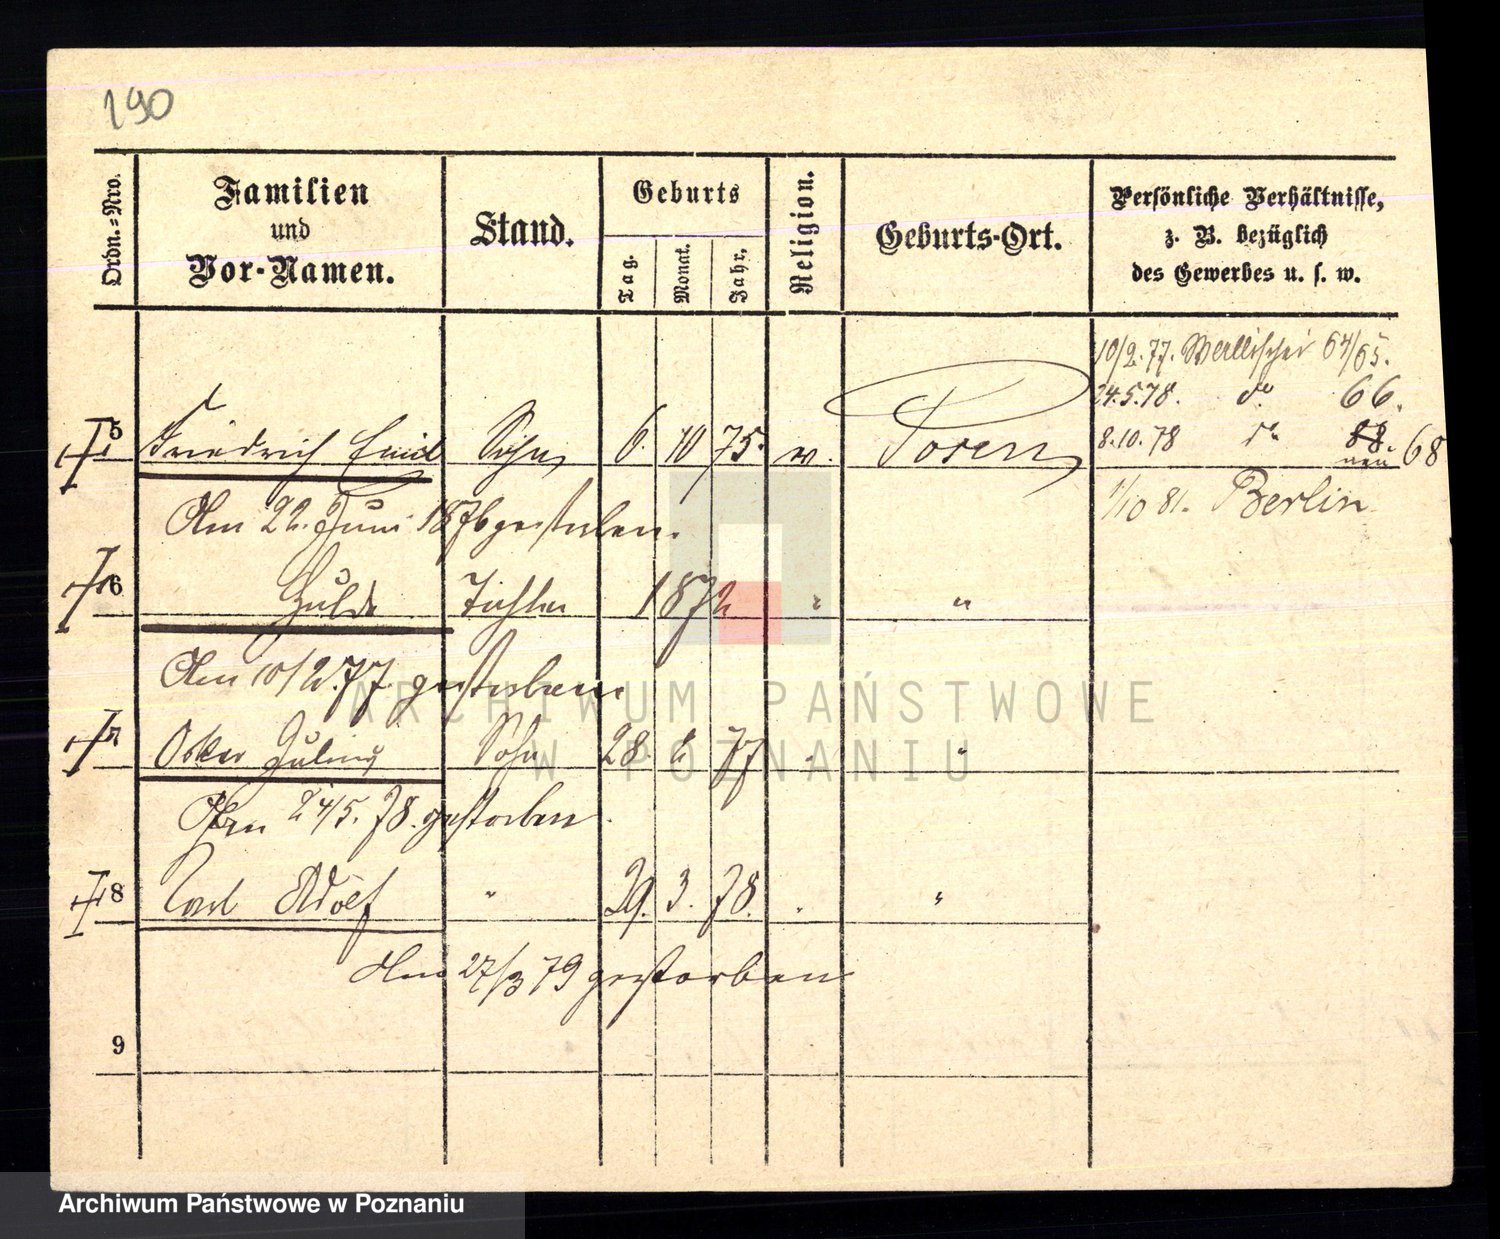 190
Ordn.=Nro.
Familien
und
Vor-Namen.
Stand.
Geburts
Tag.
Monat.
Jahr.
Religion.
Geburts-Ort.
Persönliche Verhältnisse,
z. B. bezüglich
des Gewerbes u. s. w.
10/2.77. Wallischei 64/65.
24.5.78. do 66.
8.10.78 do 88. 68
neu
1/10 81. Berlin
5 Friedrich Emil Sohn 6. 10 75. ev. Posen
Am 22. Juni 1876 gestorben.
6 Hulda Tochter 1872 " "
Am 10/2.77. gestorben
7 Oskar Julius Sohn 28 77 "
Am 24/5. 78. gestorben.
8 Carl Adolf " 29. 3. 78. "
Am 27/3 79 gestorben
9
ARCHIWUM PAŃSTWOWE
W POZNANIU
Archiwum Państwowe w Poznaniu